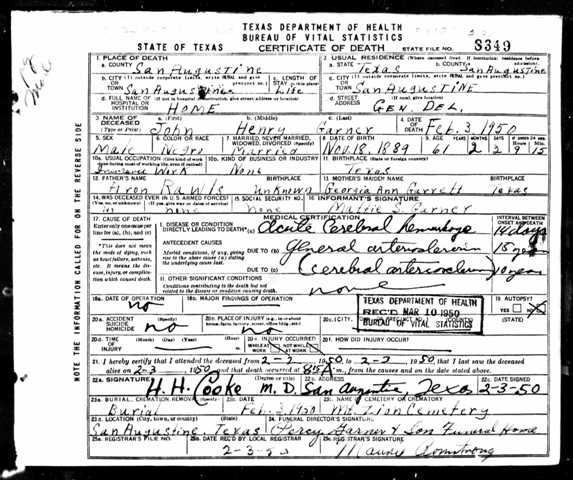 TEXAS DEPARTMENT OF HEALTH
BUREAU OF VITAL STATISTICS
STATE OF TEXAS CERTIFICATE OF DEATH STATE FILE NO. 8349
1. PLACE OF DEATH 2. USUAL RESIDENCE (Where deceased lived. If institution: residence before admission)
a. COUNTY San Augustine a. STATE Texas b. COUNTY San Augustine
b. CITY (If outside corporate limits, write RURAL and give precinct no.) OR TOWN San Augustine c. LENGTH OF STAY Life
c. CITY (If outside corporate limits, write RURAL and give precinct no.) OR TOWN San Augustine
d. FULL NAME OF HOSPITAL OR INSTITUTION (If not in hospital or institution, give street address or location) HOME
d. STREET ADDRESS (If rural, give location) GEN. DEL.
3. NAME OF DECEASED (Type or Print) a. (First) John b. (Middle) Henry c. (Last) Garner 4. DATE OF DEATH Feb. 3, 1950
5. SEX Male 6. COLOR OR RACE Negro 7. MARRIED, NEVER MARRIED, WIDOWED, DIVORCED (Specify) Married 8. DATE OF BIRTH Nov. 18. 1889 9. AGE YEARS 61 MONTHS 2 DAYS
10a. USUAL OCCUPATION (Give kind of work done during most of working life, even if retired) Insurance Work 10b. KIND OF BUSINESS OR INDUSTRY None 11. BIRTHPLACE (State or foreign country) Texas
12. FATHER'S NAME Aron Rawls Unknown 13. MOTHER'S MAIDEN NAME Georgia Ann Garrett Texas
14. WAS DECEASED EVER IN U.S. ARMED FORCES? none 15. SOCIAL SECURITY NO. none 16. INFORMANT'S SIGNATURE Mattie S. Garner
17. CAUSE OF DEATH MEDICAL CERTIFICATION INTERVAL BETWEEN ONSET AND DEATH
Enter only one cause per line for (a), (b), and (c)
I. DISEASE OR CONDITION DIRECTLY LEADING TO DEATH (a) Acute Cerebral hemorrhage 14 days
*This does not mean the mode of dying, such as heart failure, asthenia, etc. It means the disease, injury, or complication which caused death.
ANTECEDENT CAUSES
Morbid conditions, if any, giving rise to the above cause (a) stating the underlying cause last.
DUE TO (b) General arteriosclerosis 15 years
DUE TO (c) Cerebral arteriosclerosis 10 years
II. OTHER SIGNIFICANT CONDITIONS
Conditions contributing to the death but not related to the disease or condition causing death.
none
18a. DATE OF OPERATION no 18b. MAJOR FINDINGS OF OPERATION 19. AUTOPSY?
YES NO
TEXAS DEPARTMENT OF HEALTH
REC'D MAR 10 1950
BUREAU OF VITAL STATISTICS
20a. ACCIDENT SUICIDE HOMICIDE (Specify) no 20b. PLACE OF INJURY 20c. (CITY,
20d. TIME OF INJURY (Month) (Day) (Year) (Hour) no 20e. INJURY OCCURRED WHILE AT WORK NOT WHILE AT WORK 20f. HOW DID INJURY OCCUR?
21. I hereby certify that I attended the deceased from 2-2 1950, to 2-3 1950, that I last saw the deceased
alive on 2-3 1950 and that death occurred at m., from the causes and on the date stated above.
22a. SIGNATURE H. H. Cooke (Degree or title) M. D. 22b. ADDRESS San Augustine, Texas 22c. DATE SIGNED 2-3-50
23a. BURIAL, CREMATION, REMOVAL (Specify) Burial 23b. DATE Feb. 1950 23c. NAME OF CEMETERY OR CREMATORY Mt. Zion Cemetery
23d. LOCATION (City, town, or county) (State) San Augustine, Texas 24. FUNERAL DIRECTOR'S SIGNATURE Percy Garner & Son Funeral Home
25a. REGISTRAR'S FILE NO. 25b. DATE REC'D BY LOCAL REGISTRAR 2-3-50 25c. REGISTRAR'S SIGNATURE Armstrong
NOTE THE INFORMATION CALLED FOR ON THE REVERSE SIDE